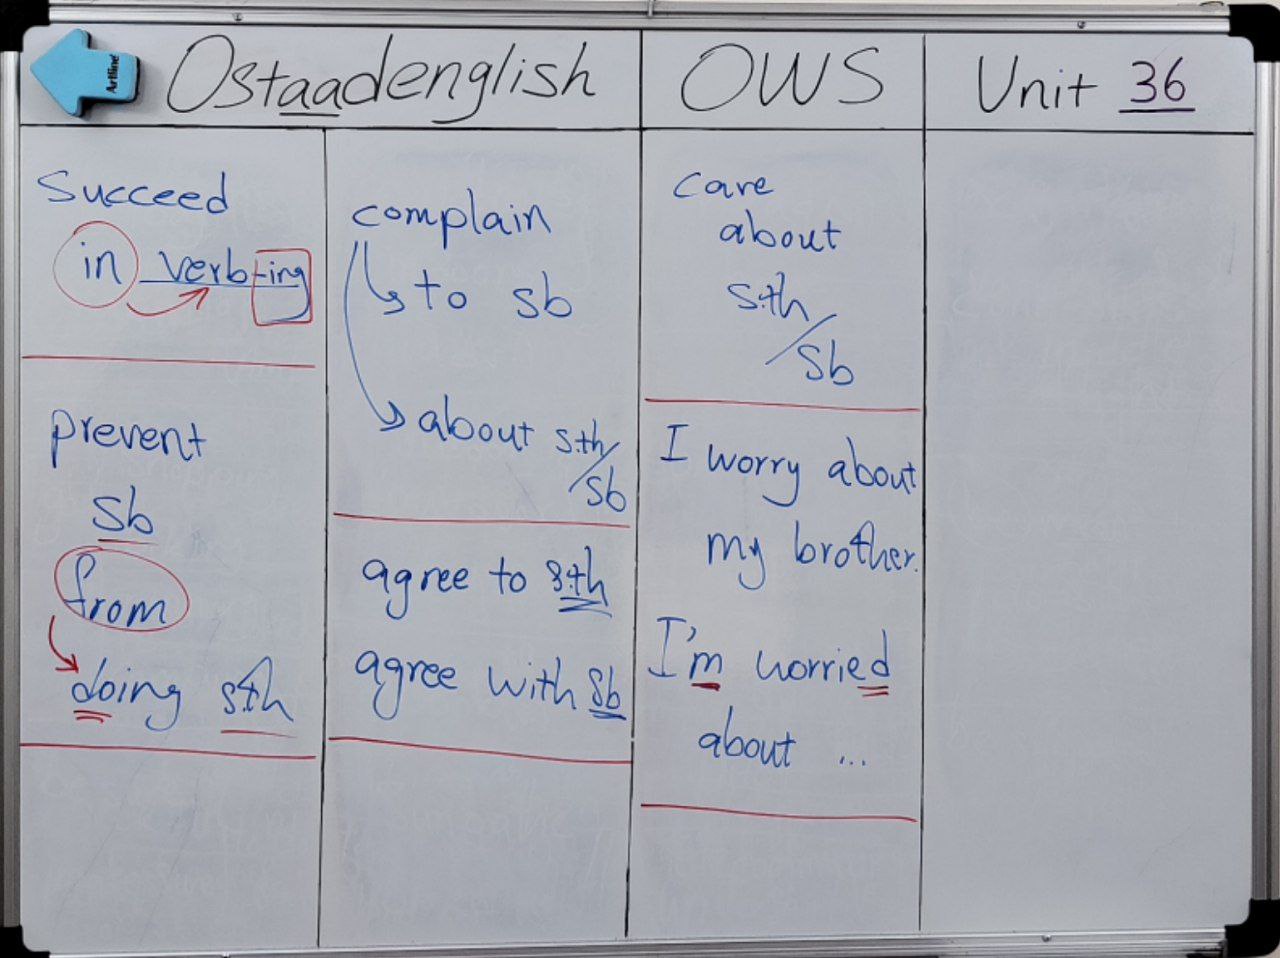 Artline
Ostaadenglish
OWS
Unit 36
Succeed
in verb-ing
prevent
sb
from
doing s.th
complain
to sb
about s.th/
sb
agree to s.th
agree with sb
care
about
s.th
/sb
I worry about
my brother.
I'm worried
about ...